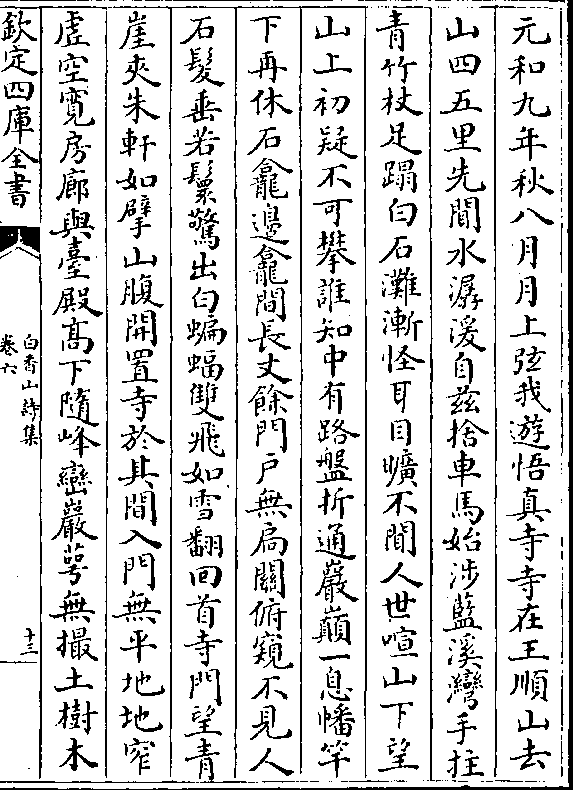 元和九年秋八月月上弦我遊悟真寺寺在王順山去
山四五里先聞水潺湲自兹捨車馬始涉藍溪灣手拄
青竹杖足蹋白石灘漸怪耳目曠不聞人世喧山下望
山上初疑不可攀誰知中有路盤折通巖巔一息幡竿
下再休石龕邊龕間長丈餘門戶無扃關俯窺不見人
石髮垂若鬟驚出白蝙蝠雙飛如雪翻回首寺門望青
崖夾朱軒如擘山腹開置寺於其間入門無平地地窄
虛空寬房廊與臺殿高下隨峰巒巖崿無撮土樹木
欽定四庫全書
白香山詩集
卷六
十三